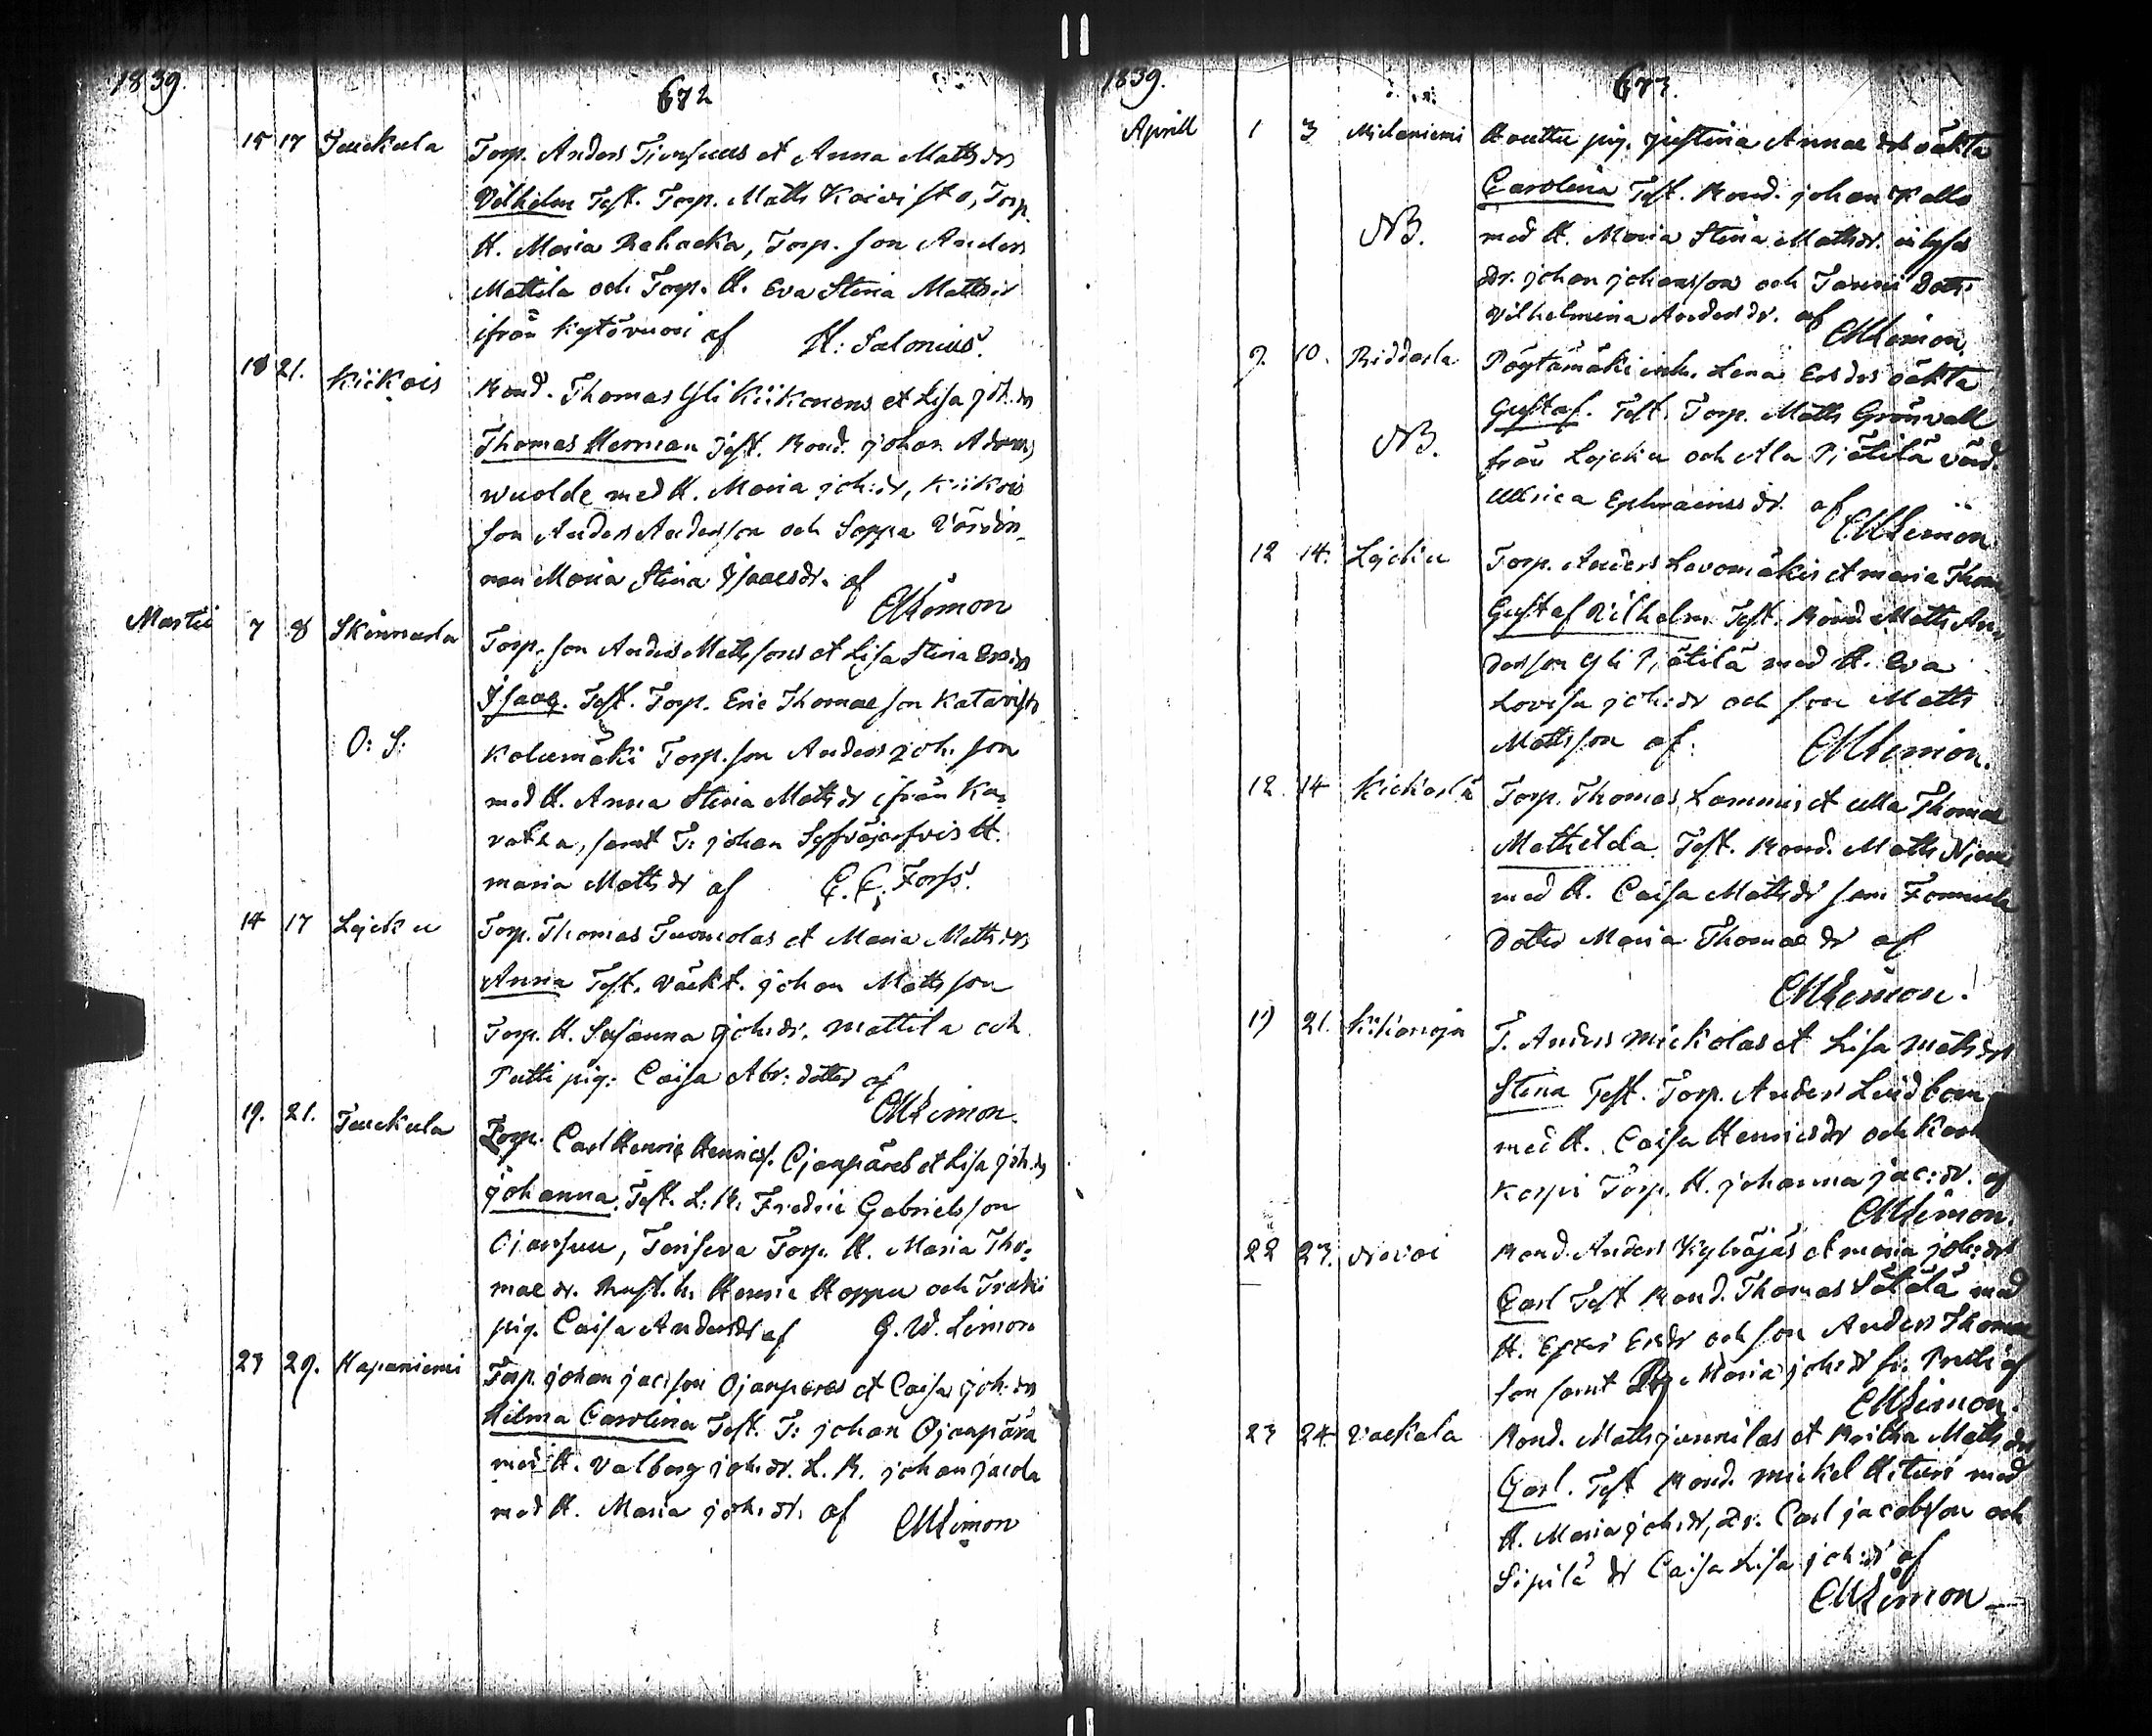 1839.
672
15 17 Jaukula Torp. Anders et Anna Matts dr
Vilhelm Test. Torp. Matts Koivisto, Torp.
H. Maria Rahacka, Torp. son Anders
Mattila och Torp. H. Eva Stina Mattsdr
ifrån af H: Salonius.
18 21. Kiikois Bond. Thomas Yli Kiikonens et Lisa joh. dr
Thomas Herman Test. Bond. johan
med H. Maria joh:dr, Kiikois
son Anders Andersson och Soppa Värdin-
nan Maria Stina Isaacsdr. af
CMLimon
Martii 7 8 Skinnarla Torp. son Anders Mattssons et Lisa Stina Ersdr
Isaac. Test. Torp. Eric Thomae son Katavisto
O: S: Kolumäki Torp. son Anders joh. son
med H. Anna Stina Mattsdr ifrån Kar-
vatka, samt T: johan H.
maria Mattsdr af C. C. Forss.
14 17 Lejcku Torp. Thomas Tuomolas et Maria Matts dr
Anna Test. Väckt. johan Mattsson
Torp. H. Susanna joh:dr. Mattila och
Putti pig: Caisa Abr: dotter af
CMLimon.
19. 21. Jaukula Torp. Carl Henric Henricss. Ojanpäräs et Lisa joh. dr
johanna. Test. L: B. Fredric Gabrielsson
Ojansuu, Torp. H. Maria Tho-
mae dr. Rust. h. Henric Hoppu och
pig. Caisa Andersdr af G. W. Limon
23 29. Haponiemi Torp. johan jacsson Ojanperas et Caisa joh. dr
Hilma Carolina Test. T: johan Ojanpärä
med H. Valborg joh:dr. L. B. johan jacola
med H. Maria joh. dr. af CMLimon
1839.
673.
Aprill 1 3 Houttu pig. justina Annae dr oäkta
Carolina Test. Bond. johan Kallo
NB. med H. Maria Stina Mattsdr.
Dr. johan johansson och Dott.
Vilhelmina Andersdr. af
CMLimon.
9. 10. Riddarla Pöytämäki inh. Lena Ers drs oäkta
Gustaf. Test. Torp. Matts Grönvall
NB. från Lejcku och Ala Pjätilä värd.
Ulrica Ephraimsdr. af
CMLimon
12 14. Lejcku Torp. Anders Lavomäkis et maria Thom
Gustaf Vilhelm. Test. Bond. Matts An-
dersson Yli Pjätilä med H. Eva
Lovisa joh:dr och son Matts
Mattsson af. CMLimon.
12. 14 Kickarla Torp. Thomas Lammis et ulla Thomae
Mathilda. Test. Bond. Matts
med H. Caisa Mattsdr sam
Dotter Maria Thomae dr af
CMLimon.
19 21. Kikanoja T. Anders Mickolas et Lisa Mattsdr
Stina Test. Torp. Anders Lindbom
med H. Caisa Henricsdr och
Kaspi Torp. H. johanna jac:dr. af
CMLimon.
22 23. Navoi Bond. Anders Kylväjäs et maria joh:dr
Carl Test Bond. Thomas Sätälä med
H. Ester Ersdr och son Anders Thomae
son samt Maria joh:dr fr. af
CMLimon.
23 24. Vackala Bond. Matts junnilas et Britha Matts dr
Carl. Test Bond. Mickel Heturi med
H. Maria joh:dr, Dr. Carl jacobsson och
Sipilä dr Caisa Lisa joh:dr af
CMLimon